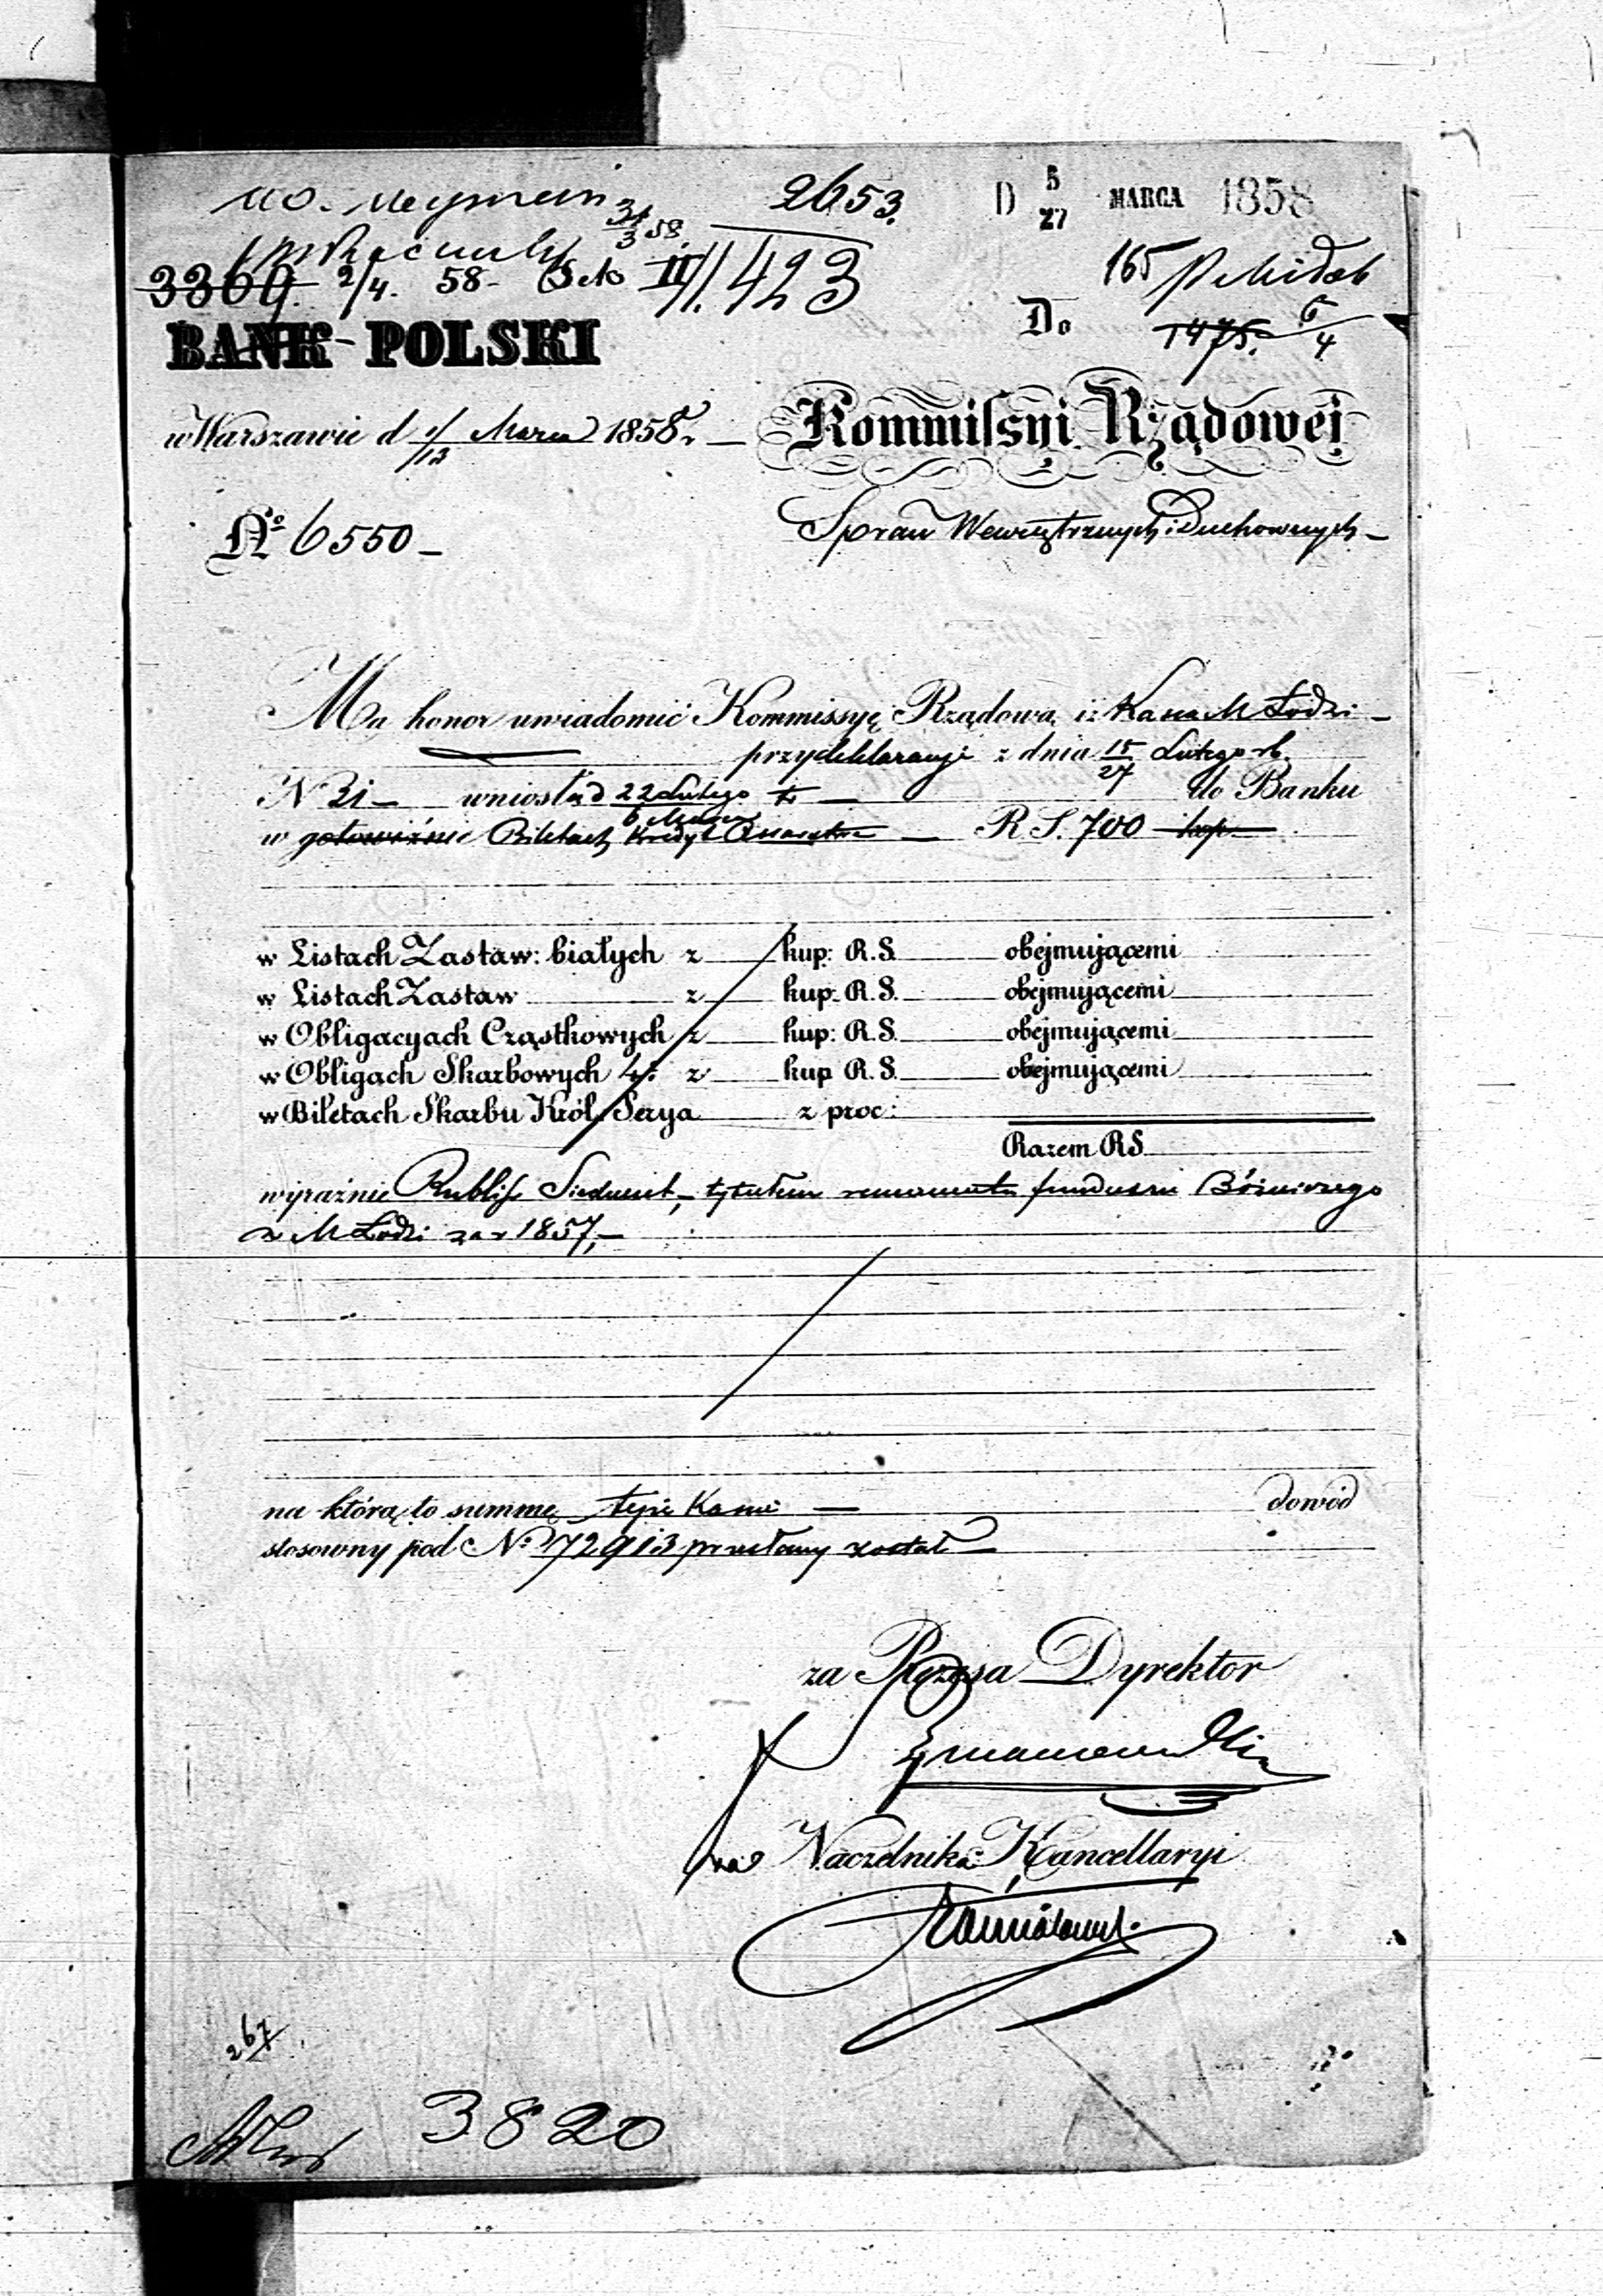 2653.
D 5/27 MARCA 1858
31/3 58
3369. 2/4. 58 - Sek II 11.423
165
Do
1475. 6/4
BANK POLSKI
w Warszawie d 1/13 Marca 1858 r. —
Kommissyi Rządowej
Spraw Wewnętrznych i Duchownych —
No 6550 —
Ma honor uwiadomić Kommissyę Rządową iż Kassa M Łodzi —
przy deklaracyi z dnia 15/27 Lutego rb.
N 31 — wniosła d 22 Lutego/6 Marca — do Banku
w gotowiźnie Biletach Kredyt — R S. 700 — kop. —
w Listach Zastaw: białych z kup: R. S. obejmującemi
w Listach Zastaw z kup: R. S. obejmującemi
w Obligacyach Cząstkowych z kup: R. S. obejmującemi
w Obligach Skarbowych 4: z kup R. S. obejmującemi
w Biletach Skarbu Król. Serya z proc:
Razem RS
wyraźnie Rubli sr Siedmset, — tytułem remanentu funduszu Bóżniczego
z M Łodzi za r 1857, —
na którą to summę tejże Kassie — dowód
stosowny pod No 72913 przesłany został —
za Prezesa Dyrektor
za Naczelnika Kancellaryi
267
3820